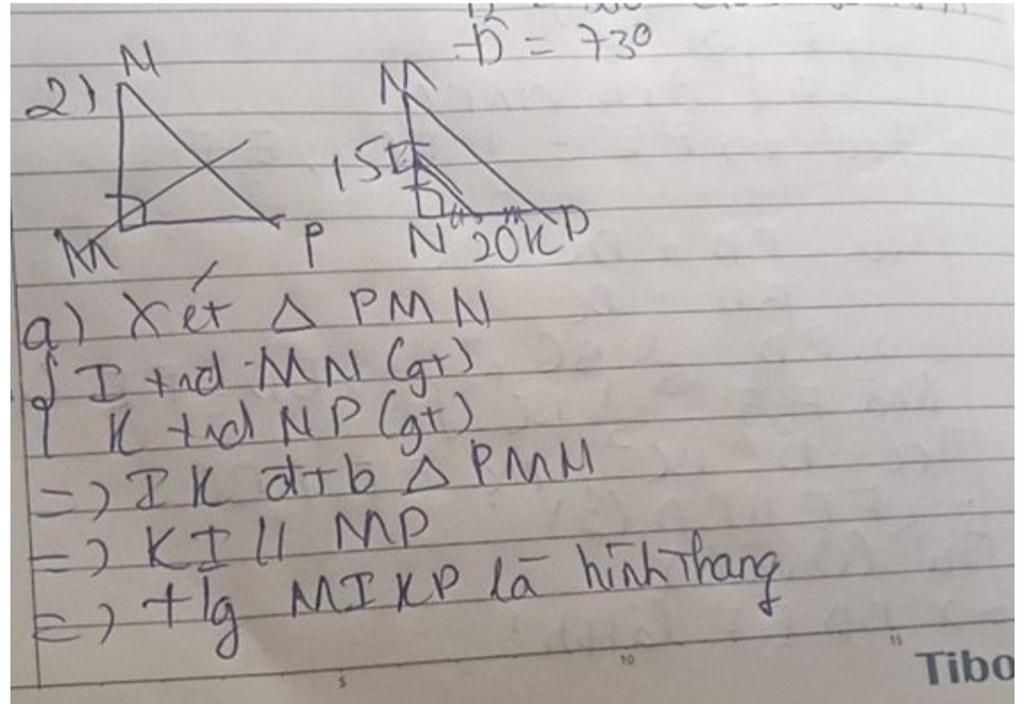 D = 730
2)
N
M
P
M
15
N 20 K P
a) Xét Δ PMN
I tnđ MN (gt)
K tnđ NP (gt)
=) IK đtb Δ PMN
=) KI // MP
=) tlg MIKP là hình thang
5
10
15
Tibo